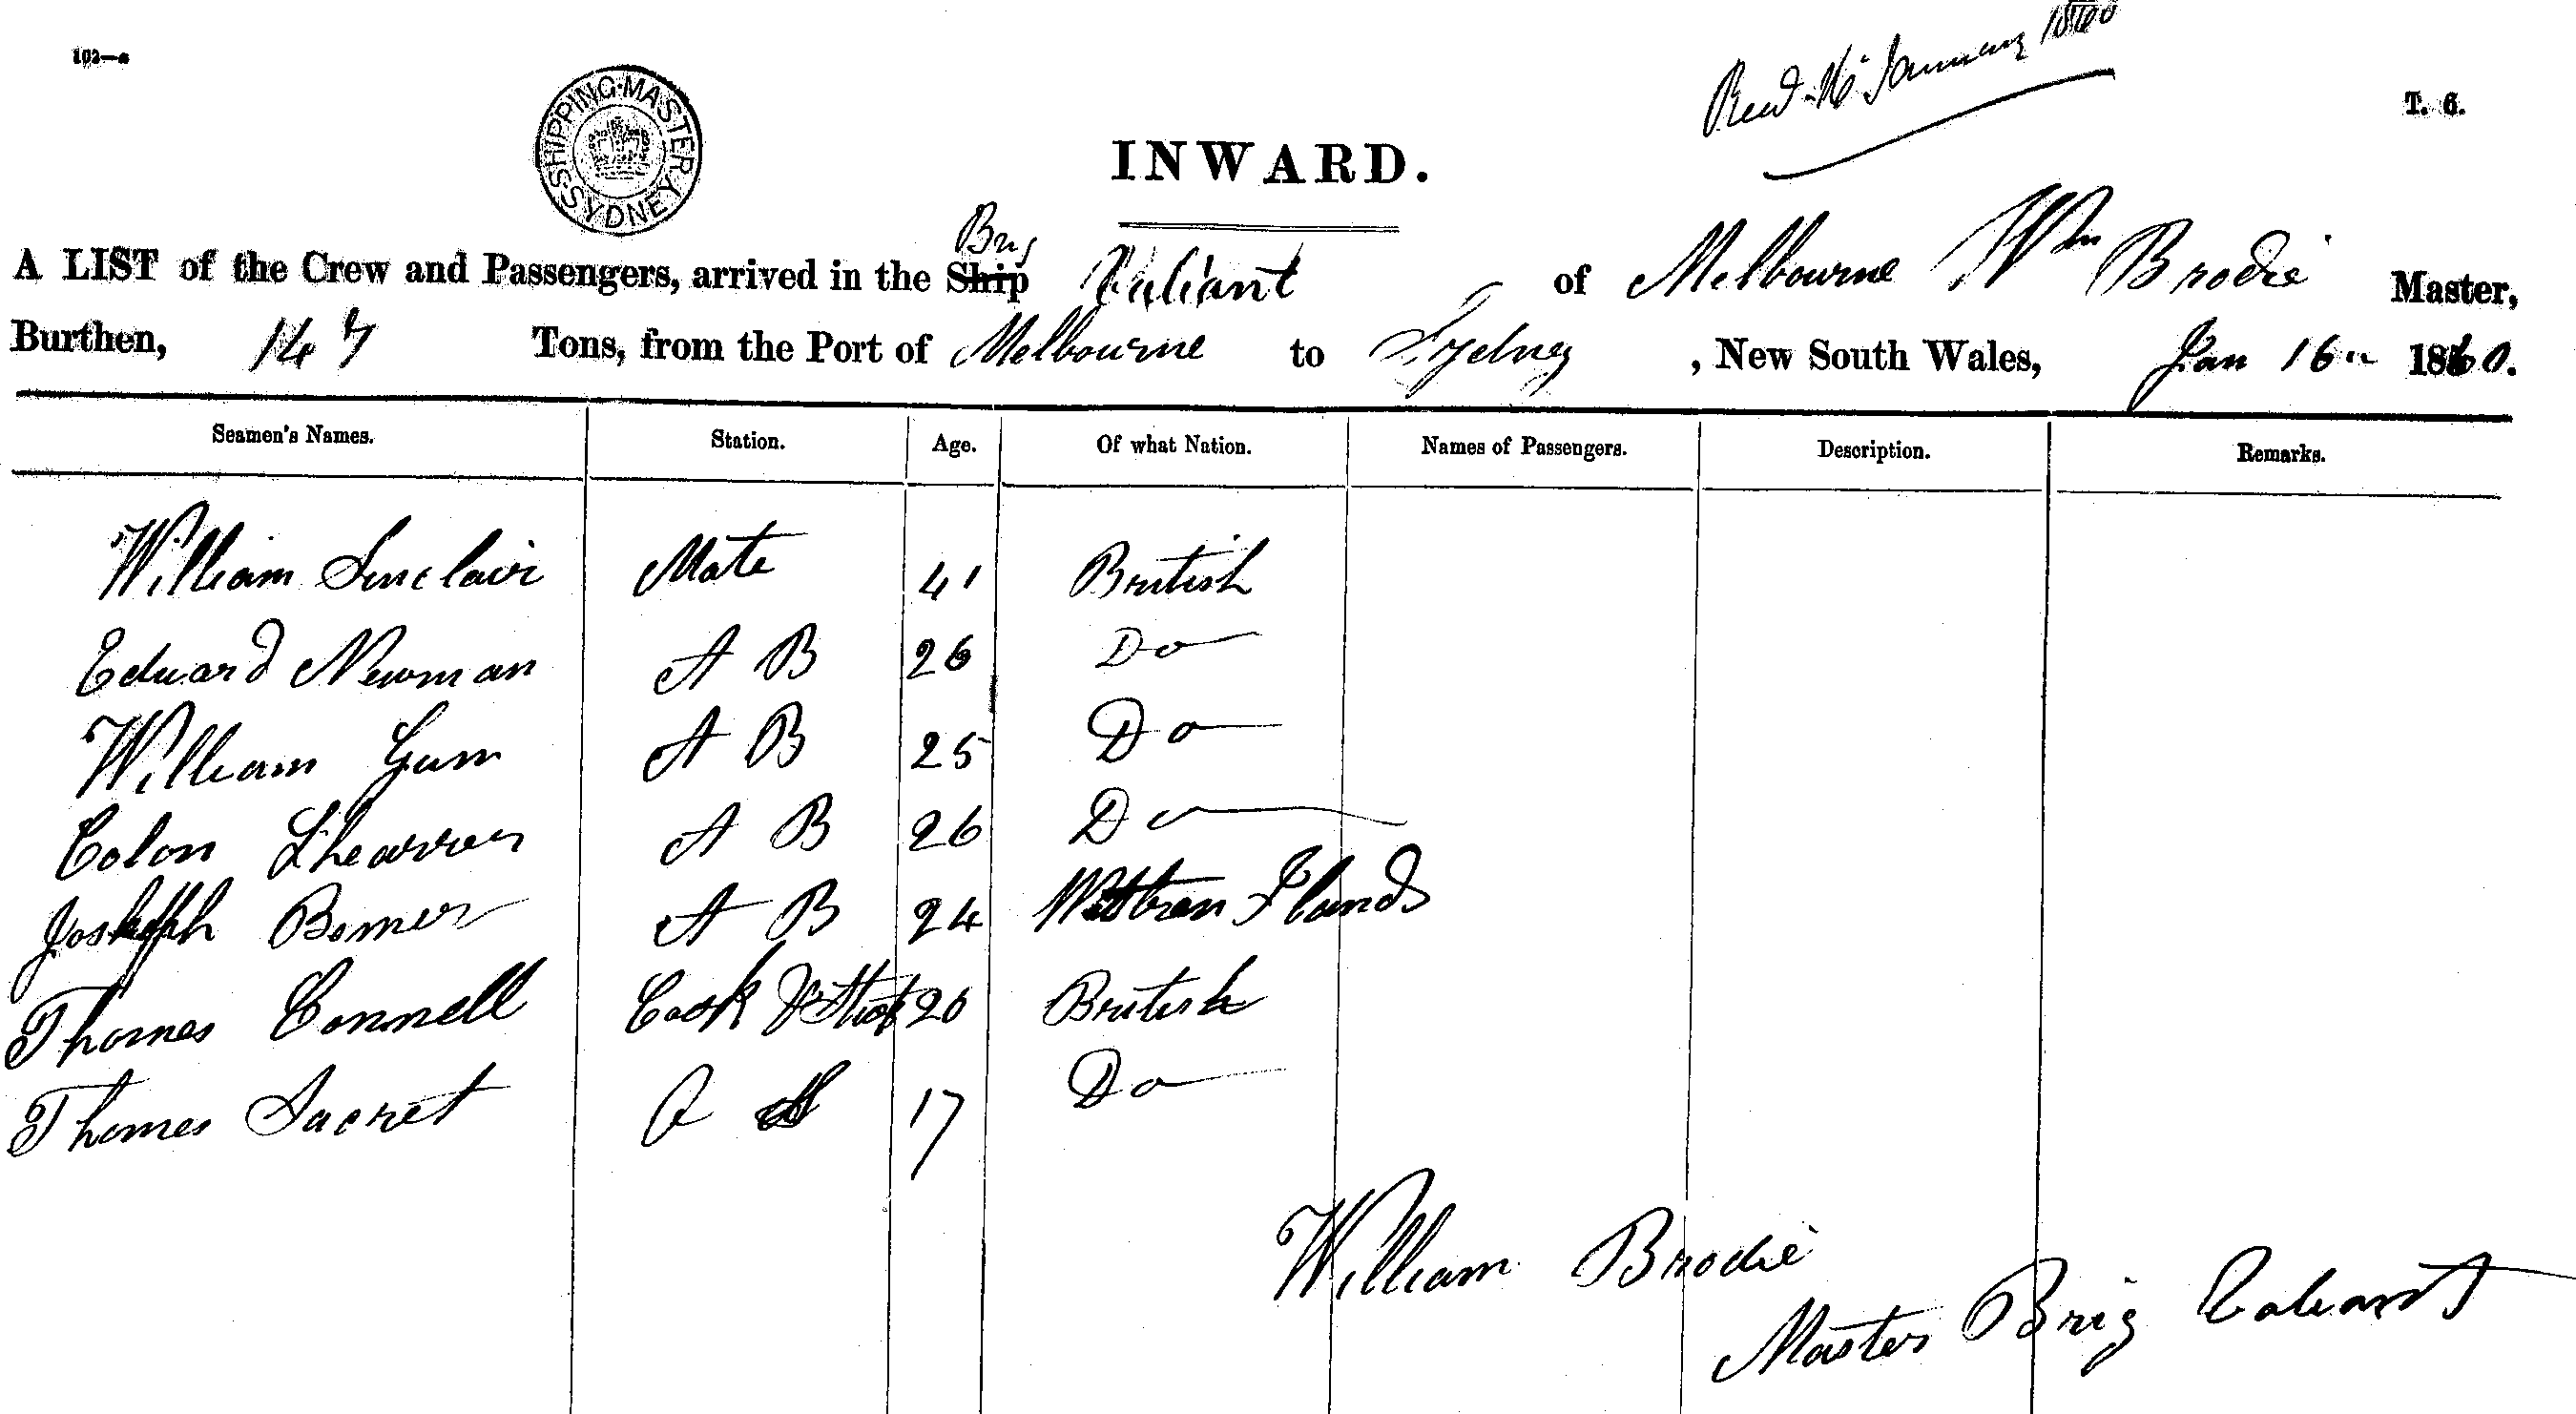 102—a
Recd 16 January 1860
T. 6.
SHIPPING MASTER SYDNEY
INWARD.
Brig
A LIST of the Crew and Passengers, arrived in the Ship Valiant of Melbourne Wm Brodie Master,
Burthen, 147 Tons, from the Port of Melbourne to Sydney, New South Wales, Jan 16 1860.
Seamen's Names. Station. Age. Of what Nation. Names of Passengers. Description. Remarks.
William Sinclair Mate 41 British
Edward Newman A B 26 Do
William Gum A B 25 Do
Colon Shearrer A B 26 Do
Joseph A B 24 Western Ilands
Thomas Connell Cook & 20 British
Thomas Sacret 17 Do
William Brodie
Master Brig Valiant